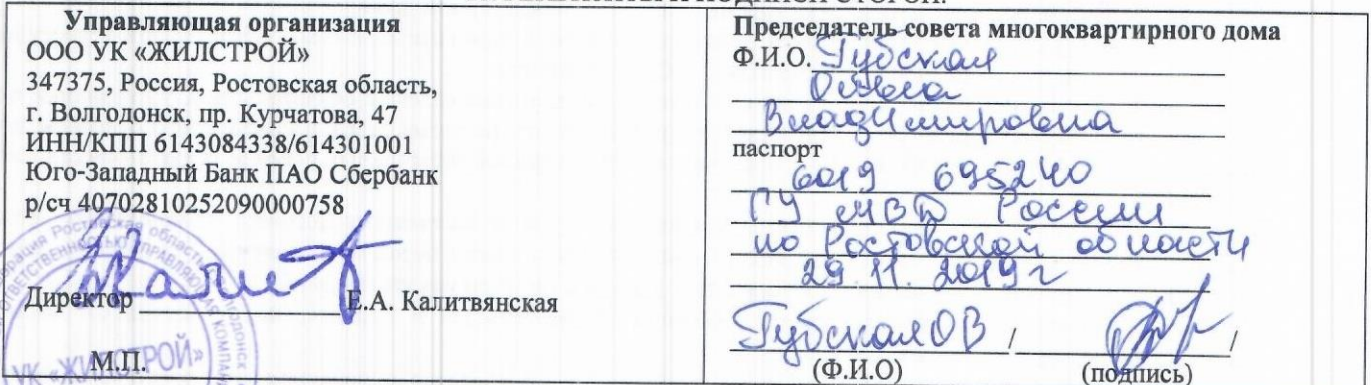 Управляющая организация
ООО УК «ЖИЛСТРОЙ»
347375, Россия, Ростовская область,
г. Волгодонск, пр. Курчатова, 47
ИНН/КПП 6143084338/614301001
Юго-Западный Банк ПАО Сбербанк
р/сч 40702810252090000758
Директор Е.А. Калитвянская
М.П.
УК «ЖИЛСТРОЙ»
Председатель совета многоквартирного дома
Ф.И.О. Губская
Владимировна
паспорт
6019 695240
ГУ МВД России
по Ростовской области
29.11.2019 г
Губская ОВ / /
(Ф.И.О) (подпись)